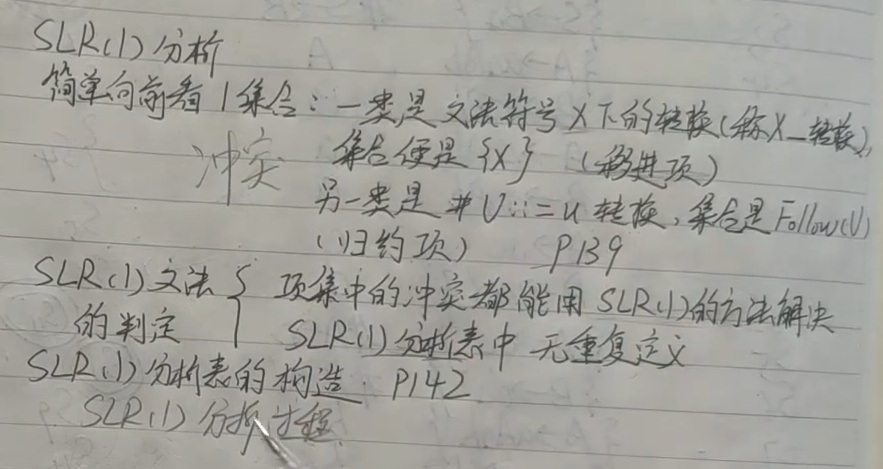 SLR(1)分析
简单向前看1集合：一类是文法符号X下的转换(称X_转换),
冲突 集合便是{X} (移进项)
另一类是#U::=u转换,集合是Follow(U)
(归约项) P139
SLR(1)文法 { 项集中的冲突都能用SLR(1)的方法解决
的判定 SLR(1)分析表中无重复定义
SLR(1)分析表的构造 P142
SLR(1)分析过程